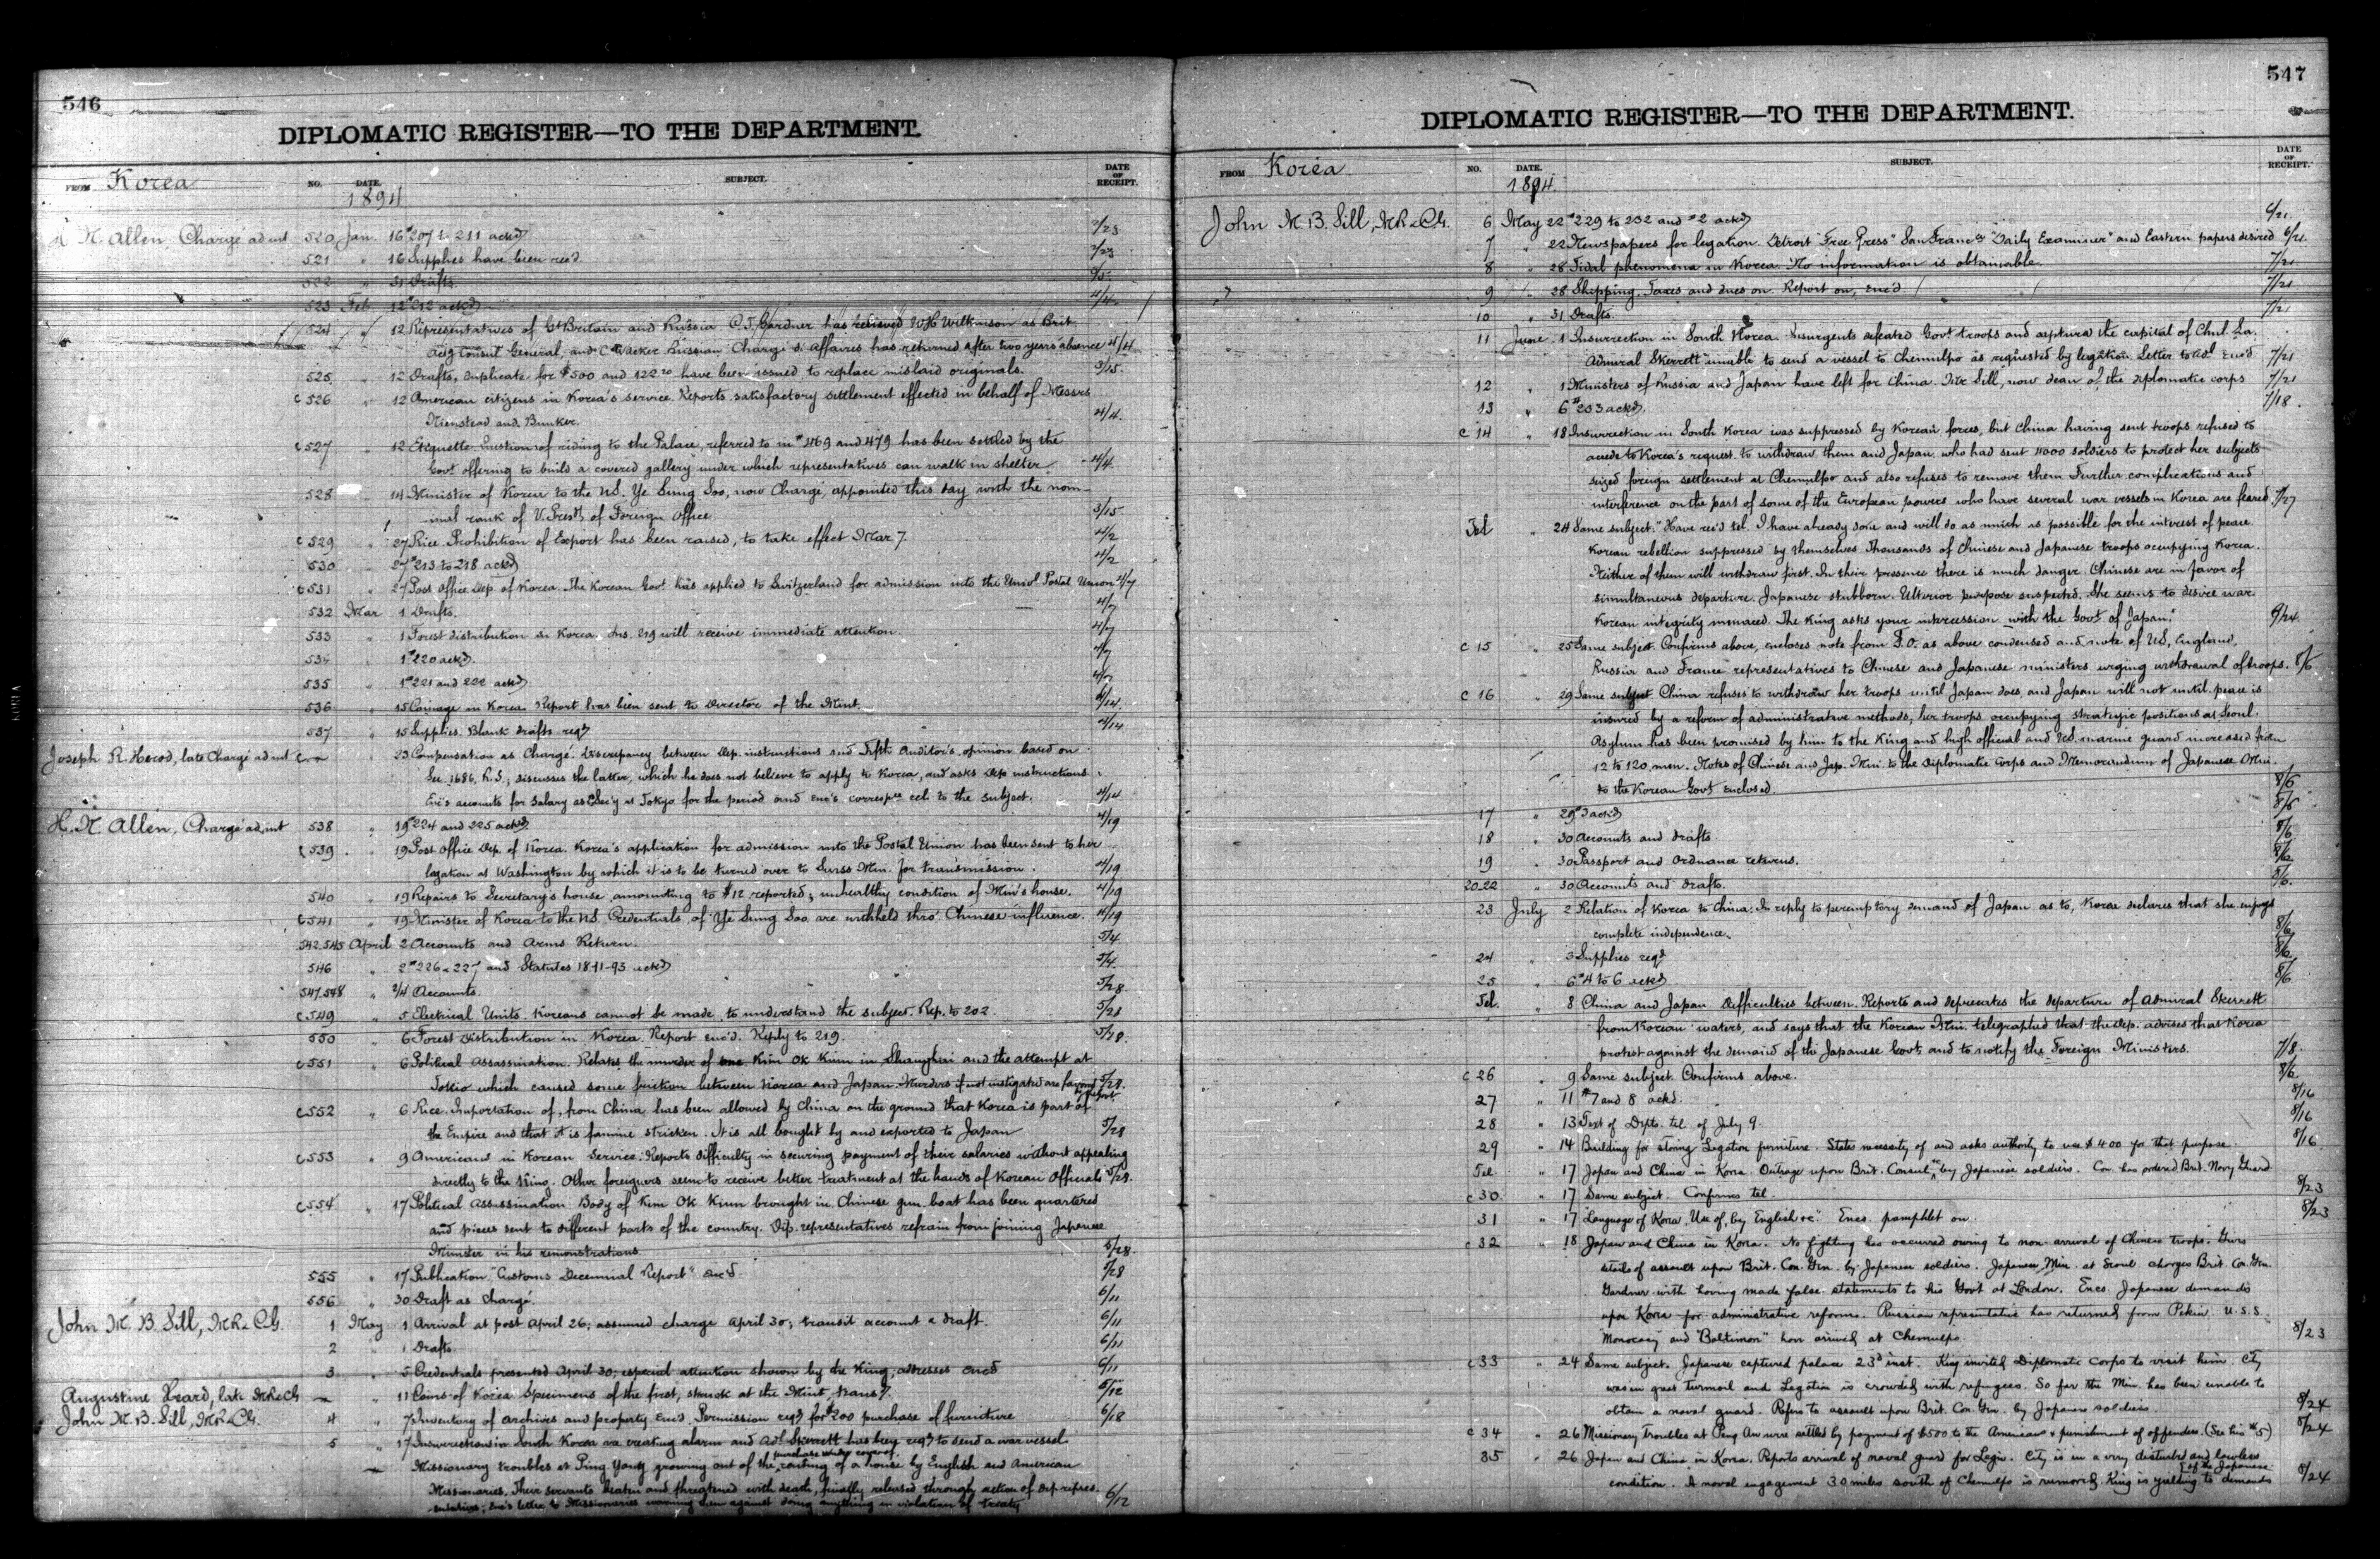 546
DIPLOMATIC REGISTER—TO THE DEPARTMENT.
FROM Korea NO. DATE. SUBJECT. DATE OF RECEIPT.
1894
H. N. Allen, Chargé ad int 520 Jan. 16 #207 to 211 ackd 2/23
521 " 16 Supplies have been rec'd. 2/23
522 " 31 Drafts. 3/5
523 Feb 12 #212 ackd 4/4
524 " 12 Representatives of Gt Britain and Russia. C. T. Gardner has relieved W. H. Wilkinson as Brit
actg Consul General, and C. Waeber Russian Chargé d'Affaires has returned after two years absence 4/4
525 " 12 Drafts, duplicate for $500 and 122.20 have been issued to replace mislaid originals. 3/15.
c 526 " 12 American citizens in Korea's service. Reports satisfactory settlement effected in behalf of Messrs
Nienstead and Bunker. 4/4.
c 527 " 12 Etiquette. Question of riding to the Palace, referred to in #469 and 479 has been settled by the
Govt offering to build a covered gallery under which representatives can walk in shelter. 4/4.
528 " 14 Minister of Korea to the U.S. Ye Sung Soo, now Chargé, appointed this day with the nom-
inal rank of V. Prest of Foreign Office 3/15
c 529 " 27 Rice. Prohibition of Export has been raised, to take effect Mar 7. 4/2
530 " 27 #213 to 218 ackd 4/2
c 531 " 27 Post Office Dep. of Korea. The Korean Govt has applied to Switzerland for admission into the Univl Postal Union 4/7
532 Mar 1 Drafts. 4/7
533 " 1 Forest distribution in Korea. Ins. 219 will receive immediate attention. 4/7
534 " 1 #220 ackd. 4/7
535 " 1 #221 and 222 ackd 4/7
536 " 15 Coinage in Korea. Report has been sent to Director of the Mint. 4/14.
537 " 15 Supplies. Blank drafts reqd 4/14
Joseph R. Herod, late Chargé ad int c — " 23 Compensation as Chargé. Discrepancy between Dep. instructions and Fifth Auditor's opinion based on
Sec. 1686, R.S.; discusses the latter, which he does not believe to apply to Korea, and asks Dep instructions.
Enc's accounts for salary as Sec'y at Tokyo for the period and enc's correspce rel. to the subject. 4/14
H. N. Allen, Chargé ad int 538 " 19 #224 and 225 ackd 4/19
c 539 " 19 Post Office Dep. of Korea. Korea's application for admission into the Postal Union has been sent to her
legation at Washington by which it is to be turned over to Swiss Min. for transmission. 4/19
540 " 19 Repairs to Secretary's house, amounting to $12 reported; unhealthy condition of Min's house. 4/19
c 541 " 19 Minister of Korea to the U.S. Credentials of Ye Sung Soo are withheld thro' Chinese influence. 4/19
542.545 April 2 Accounts and Arms Return. 5/4
546 " 2 #226 & 227 and Statutes 1841-93 ackd 5/4.
547.548 " 2/4 Accounts. 5/28
c 549 " 5 Electrical Units. Koreans cannot be made to understand the subject. Rep. to 202. 5/28
550 " 6 Forest Distribution in Korea. Report enc'd. Reply to 219. 5/28.
c 551 " 6 Political Assassination. Relates the murder of one Kim Ok Kiun in Shanghai and the attempt at
Tokio which caused some friction between Korea and Japan. Murders if not instigated are favored by Govt 5/28.
c 552 " 6 Rice. Importation of, from China has been allowed by China on the ground that Korea is part of
the Empire and that it is famine stricken. It is all bought by and exported to Japan 5/28
c 553 " 9 Americans in Korean Service. Reports difficulty in securing payment of their salaries without appealing
directly to the King. Other foreigners seem to receive better treatment at the hands of Korean Officials 5/28.
c 554 " 17 Political Assassination. Body of Kim Ok Kiun brought in Chinese gun boat has been quartered
and pieces sent to different parts of the country. Dip. representatives refrain from joining Japanese
Minister in his remonstrations. 5/28.
555 " 17 Publication "Customs Decennial Report" enc'd. 5/28
556 " 30 Draft as Chargé. 6/11
John M. B. Sill, M.R.&C.G. 1 May 1 Arrival at post April 26; assumed charge April 30; transit account & draft. 6/11
2 " 1 Drafts. 6/11
3 " 5 Credentials presented April 30; especial attention shown by the King; addresses enc'd 6/11
Augustine Heard, late M.R.&C.G. — " 11 Coins of Korea. Specimens of the first, struck at the Mint, trans'd. 6/12
John M. B. Sill, M.R.&C.G. 4 " 7 Inventory of archives and property enc'd. Permission reqd for $200 purchase of furniture 6/18
5 " 17 Insurrections in South Korea are creating alarm and Adl Skerrett has been reqd to send a war vessel.
Missionary troubles at Ping Yang growing out of the purchase under cover of a house by English and American
Missionaries. Their servants beaten and threatened with death, finally released through action of Dep. repres-
entatives; enc's letter to Missionaries warning them against doing anything in violation of treaty 6/12
547
DIPLOMATIC REGISTER—TO THE DEPARTMENT.
FROM Korea NO. DATE. SUBJECT. DATE OF RECEIPT.
1894
John M. B. Sill, M.R.&C.G. 6 May 22 #229 to 232 and #2 ackd 6/21.
7 " 22 Newspapers for legation. Detroit "Free Press" San Franco "Daily Examiner" and Eastern papers desired 6/21.
8 " 28 Tidal phenomena in Korea. No information is obtainable. 7/21
9 " 28 Shipping. Taxes and dues on. Report on, enc'd. 7/21
10 " 31 Drafts. 7/21
11 June 1 Insurrection in South Korea. Insurgents defeated Govt troops and capture the capital of Chul La.
Admiral Skerrett unable to send a vessel to Chemulpo as requested by legation. Letter to Adl enc'd 7/21
12 " 1 Ministers of Russia and Japan have left for China. Mr Sill, now dean of the diplomatic corps 7/21
13 " 6 #233 ackd. 7/18.
c 14 " 18 Insurrection in South Korea was suppressed by Korean forces, but China having sent troops refused to
accede to Korea's request to withdraw them and Japan, who had sent 4000 soldiers to protect her subjects
seized foreign settlement at Chemulpo and also refuses to remove them. Further complications and
interference on the part of some of the European powers who have several war vessels in Korea are feared 7/27
Tel " 24 Same subject. "Have rec'd tel. I have already done and will do as much as possible for the interest of peace.
Korean rebellion suppressed by themselves. Thousands of Chinese and Japanese troops occupying Korea.
Neither of them will withdraw first. In their presence there is much danger. Chinese are in favor of
simultaneous departure. Japanese stubborn. Ulterior purpose suspected. She seems to desire war.
Korean integrity menaced. The King asks your intercession with the Govt of Japan." 6/24.
c 15 " 25 Same subject. Confirms above, encloses note from F.O. as above condensed and note of U.S, England,
Russia and France representatives to Chinese and Japanese ministers urging withdrawal of troops. 8/6
c 16 " 29 Same subject China refuses to withdraw her troops until Japan does, and Japan will not until peace is
insured by a reform of administrative methods, her troops occupying strategic positions at Seoul.
Asylum has been promised by him to the King and high official and U.S. marine guard increased from
12 to 120 men. Notes of Chinese and Jap. Min. to the Diplomatic Corps and Memorandum of Japanese Min.
to the Korean Govt enclosed. 8/6
17 " 29 #3 ackd 8/6
18 " 30 Accounts and drafts 8/6
19 " 30 Passport and Ordnance returns. 8/6
20-22 " 30 Accounts and drafts. 8/6.
23 July 2 Relation of Korea to China. In reply to peremptory demand of Japan as to, Korea declares that she enjoys
complete independence. 8/6
24 " 3 Supplies reqd 8/6
25 " 6 #4 to 6 ackd 8/6
Tel. " 8 China and Japan. Difficulties between. Reports and deprecates the departure of Admiral Skerrett
from Korean waters, and says that the Korean Min. telegraphed that the Dep. advises that Korea
protest against the demand of the Japanese Govt and to notify the Foreign Ministers. 7/8.
c 26 " 9 Same subject. Confirms above. 8/6.
27 " 11 #7 and 8 ackd. 8/16
28 " 13 Text of Dept's. tel. of July 9. 8/16
29 " 14 Building for storing Legation furniture. States necessity of and asks authority to use $400 for that purpose. 8/16
Tel. " 17 Japan and China in Korea. Outrage upon Brit. Consul &c by Japanese soldiers. Con. has ordered Brit. Navy Guard
c 30. " 17 Same subject. Confirms tel. 8/23
31 " 17 "Language of Korea, Use of, by English &c". Encs. pamphlet on. 8/23
c 32 " 18 Japan and China in Korea. No fighting has occurred owing to non-arrival of Chinese troops. Gives
details of assault upon Brit. Con. Gen. by Japanese soldiers. Japanese Min. at Seoul charges Brit. Con. Gen.
Gardner with having made false statements to his Govt at London. Encs. Japanese demands
upon Korea for administrative reforms. Russian representative has returned from Pekin. U.S.S.
"Monocacy" and "Baltimore" have arrived at Chemulpo. 8/23
c 33 " 24 Same subject. Japanese captured palace 23d inst. King invited Diplomatic Corps to visit him. City
was in great turmoil and Legation is crowded with refugees. So far the Min. has been unable to
obtain a naval guard. Refers to assault upon Brit. Con. Gen. by Japanese soldiers. 8/24
c 34 " 26 Missionary troubles at Peng An were settled by payment of $500 to the Americans & punishment of offenders. (See his #5) 8/24
35 " 26 Japan and China in Korea. Reports arrival of naval guard for Legn. City is in a very disturbed and lawless
condition. A naval engagement 30 miles south of Chemulpo is rumored. King is yielding to demands of the Japanese 8/24